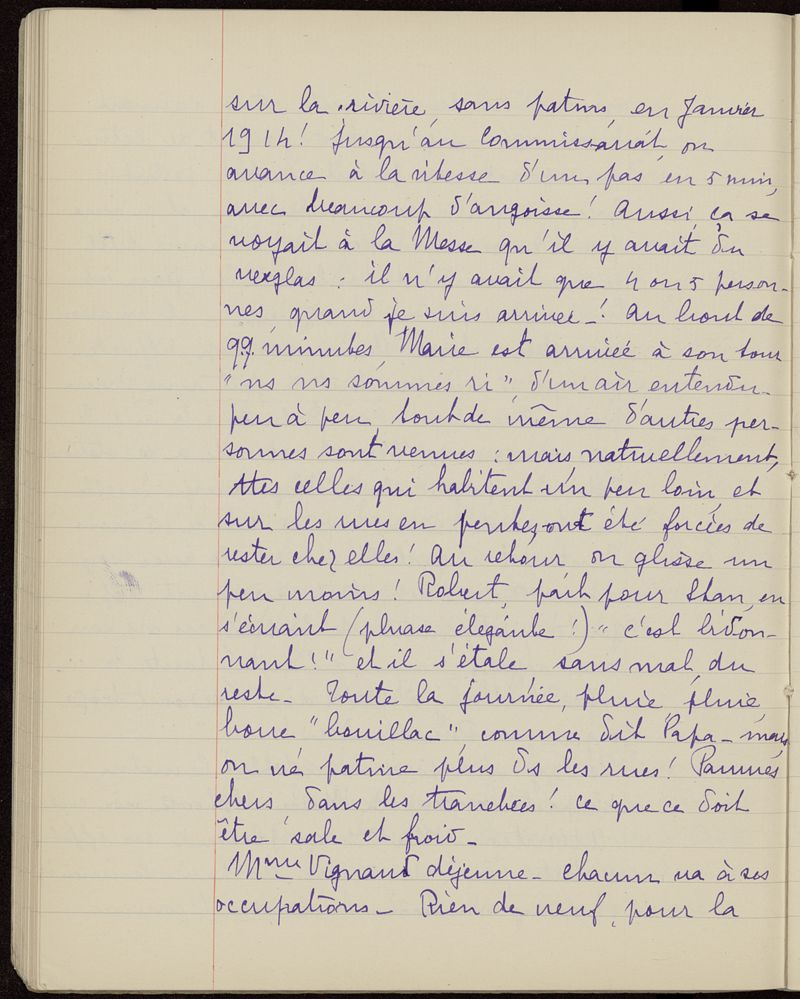 sur la rivière, sans patins, en Janvier
1914! Jusqu'au Commissariat, on
avance à la vitesse d'un pas en 5 min,
avec beaucoup d'angoisse! Aussi, ça se
voyait à la Messe qu'il y avait du
verglas : il n'y avait que 4 ou 5 person-
nes, quand je suis arrivée -! Au bout de
qq. minutes, Marie est arrivée à son tour
"ns ns sommes ri", d'un air entendu.
peu à peu, tout de même d'autres per-
sonnes sont venues : mais naturellement,
ttes celles qui habitent un peu loin, et
sur les rues en pentes, ont été forcées de
rester chez elles! Au retour, on glisse un
peu moins! Robert, part pour Stan, en
s'écriant (phrase élégante!) "c'est bidon-
nant!" et il s'étale sans mal, du
reste - Toute la journée, pluie, pluie,
boue "bouillac", comme dit Papa - mais
on ne patine plus ds les rues! Pauvres
chers dans les tranchées! ce que ce doit
être sale et froid -
Mme Vignaud déjeune - chacun va à ses
occupations - Rien de neuf, pour la